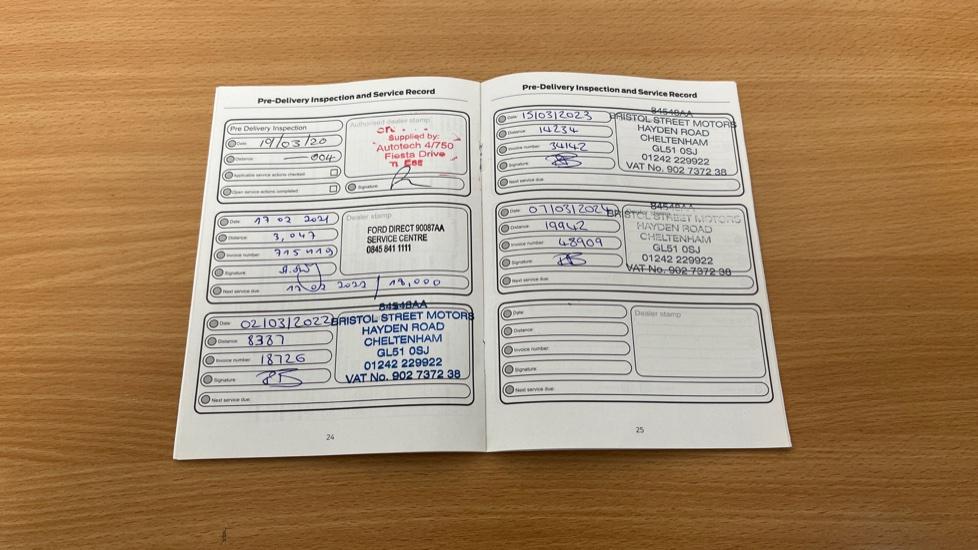 Pre-Delivery Inspection and Service Record
Pre Delivery Inspection
Date 19/03/20
Distance 004
Applicable service actions checked
Open service actions completed
Authorised dealer stamp
Supplied by:
Autotech 4/750
Fiesta Drive
Signature
Date 17 02 2021
Distance 3,047
Invoice number 715419
Signature
Next service due: 17 02 2022 / 18,000
Dealer stamp
FORD DIRECT 90087AA
SERVICE CENTRE
0845 841 1111
Date 02/03/2022
Distance 8387
Invoice number 18726
Signature
Next service due:
84548AA
BRISTOL STREET MOTORS
HAYDEN ROAD
CHELTENHAM
GL51 0SJ
01242 229922
VAT No. 902 7372 38
24
Pre-Delivery Inspection and Service Record
Date 15/03/2023
Distance 14234
Invoice number 34142
Signature
Next service due:
84548AA
BRISTOL STREET MOTORS
HAYDEN ROAD
CHELTENHAM
GL51 0SJ
01242 229922
VAT No. 902 7372 38
Date 07/03/2024
Distance 19942
Invoice number 48909
Signature
Next service due:
84548AA
BRISTOL STREET MOTORS
HAYDEN ROAD
CHELTENHAM
GL51 0SJ
01242 229922
VAT No. 902 7372 38
Date
Distance
Invoice number
Signature
Next service due:
Dealer stamp
25